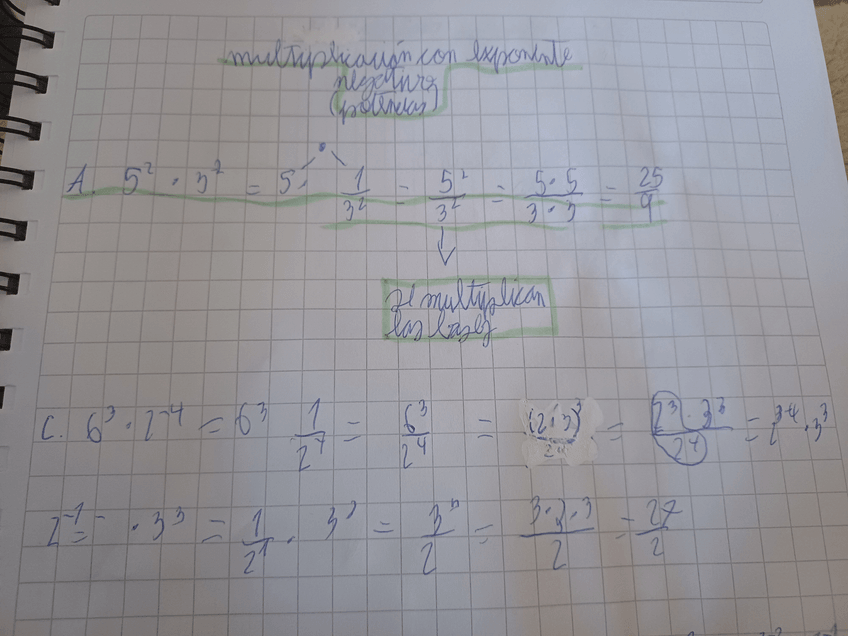 multiplicación con exponente
negativo
(potencias)
A. 5² · 3² = 5 · 1/3² = 5²/3² = 5·5/3·3 = 25/9
se multiplican
las bases
C. 6³ · 2⁻⁴ = 6³ 1/2⁴ = 6³/2⁴ = (2·3)³/2⁴ = 2³·3³/2⁴ = 2³⁻⁴·3³
2⁻¹ = · 3³ = 1/2¹ · 3³ = 3³/2 = 3·3·3/2 = 27/2